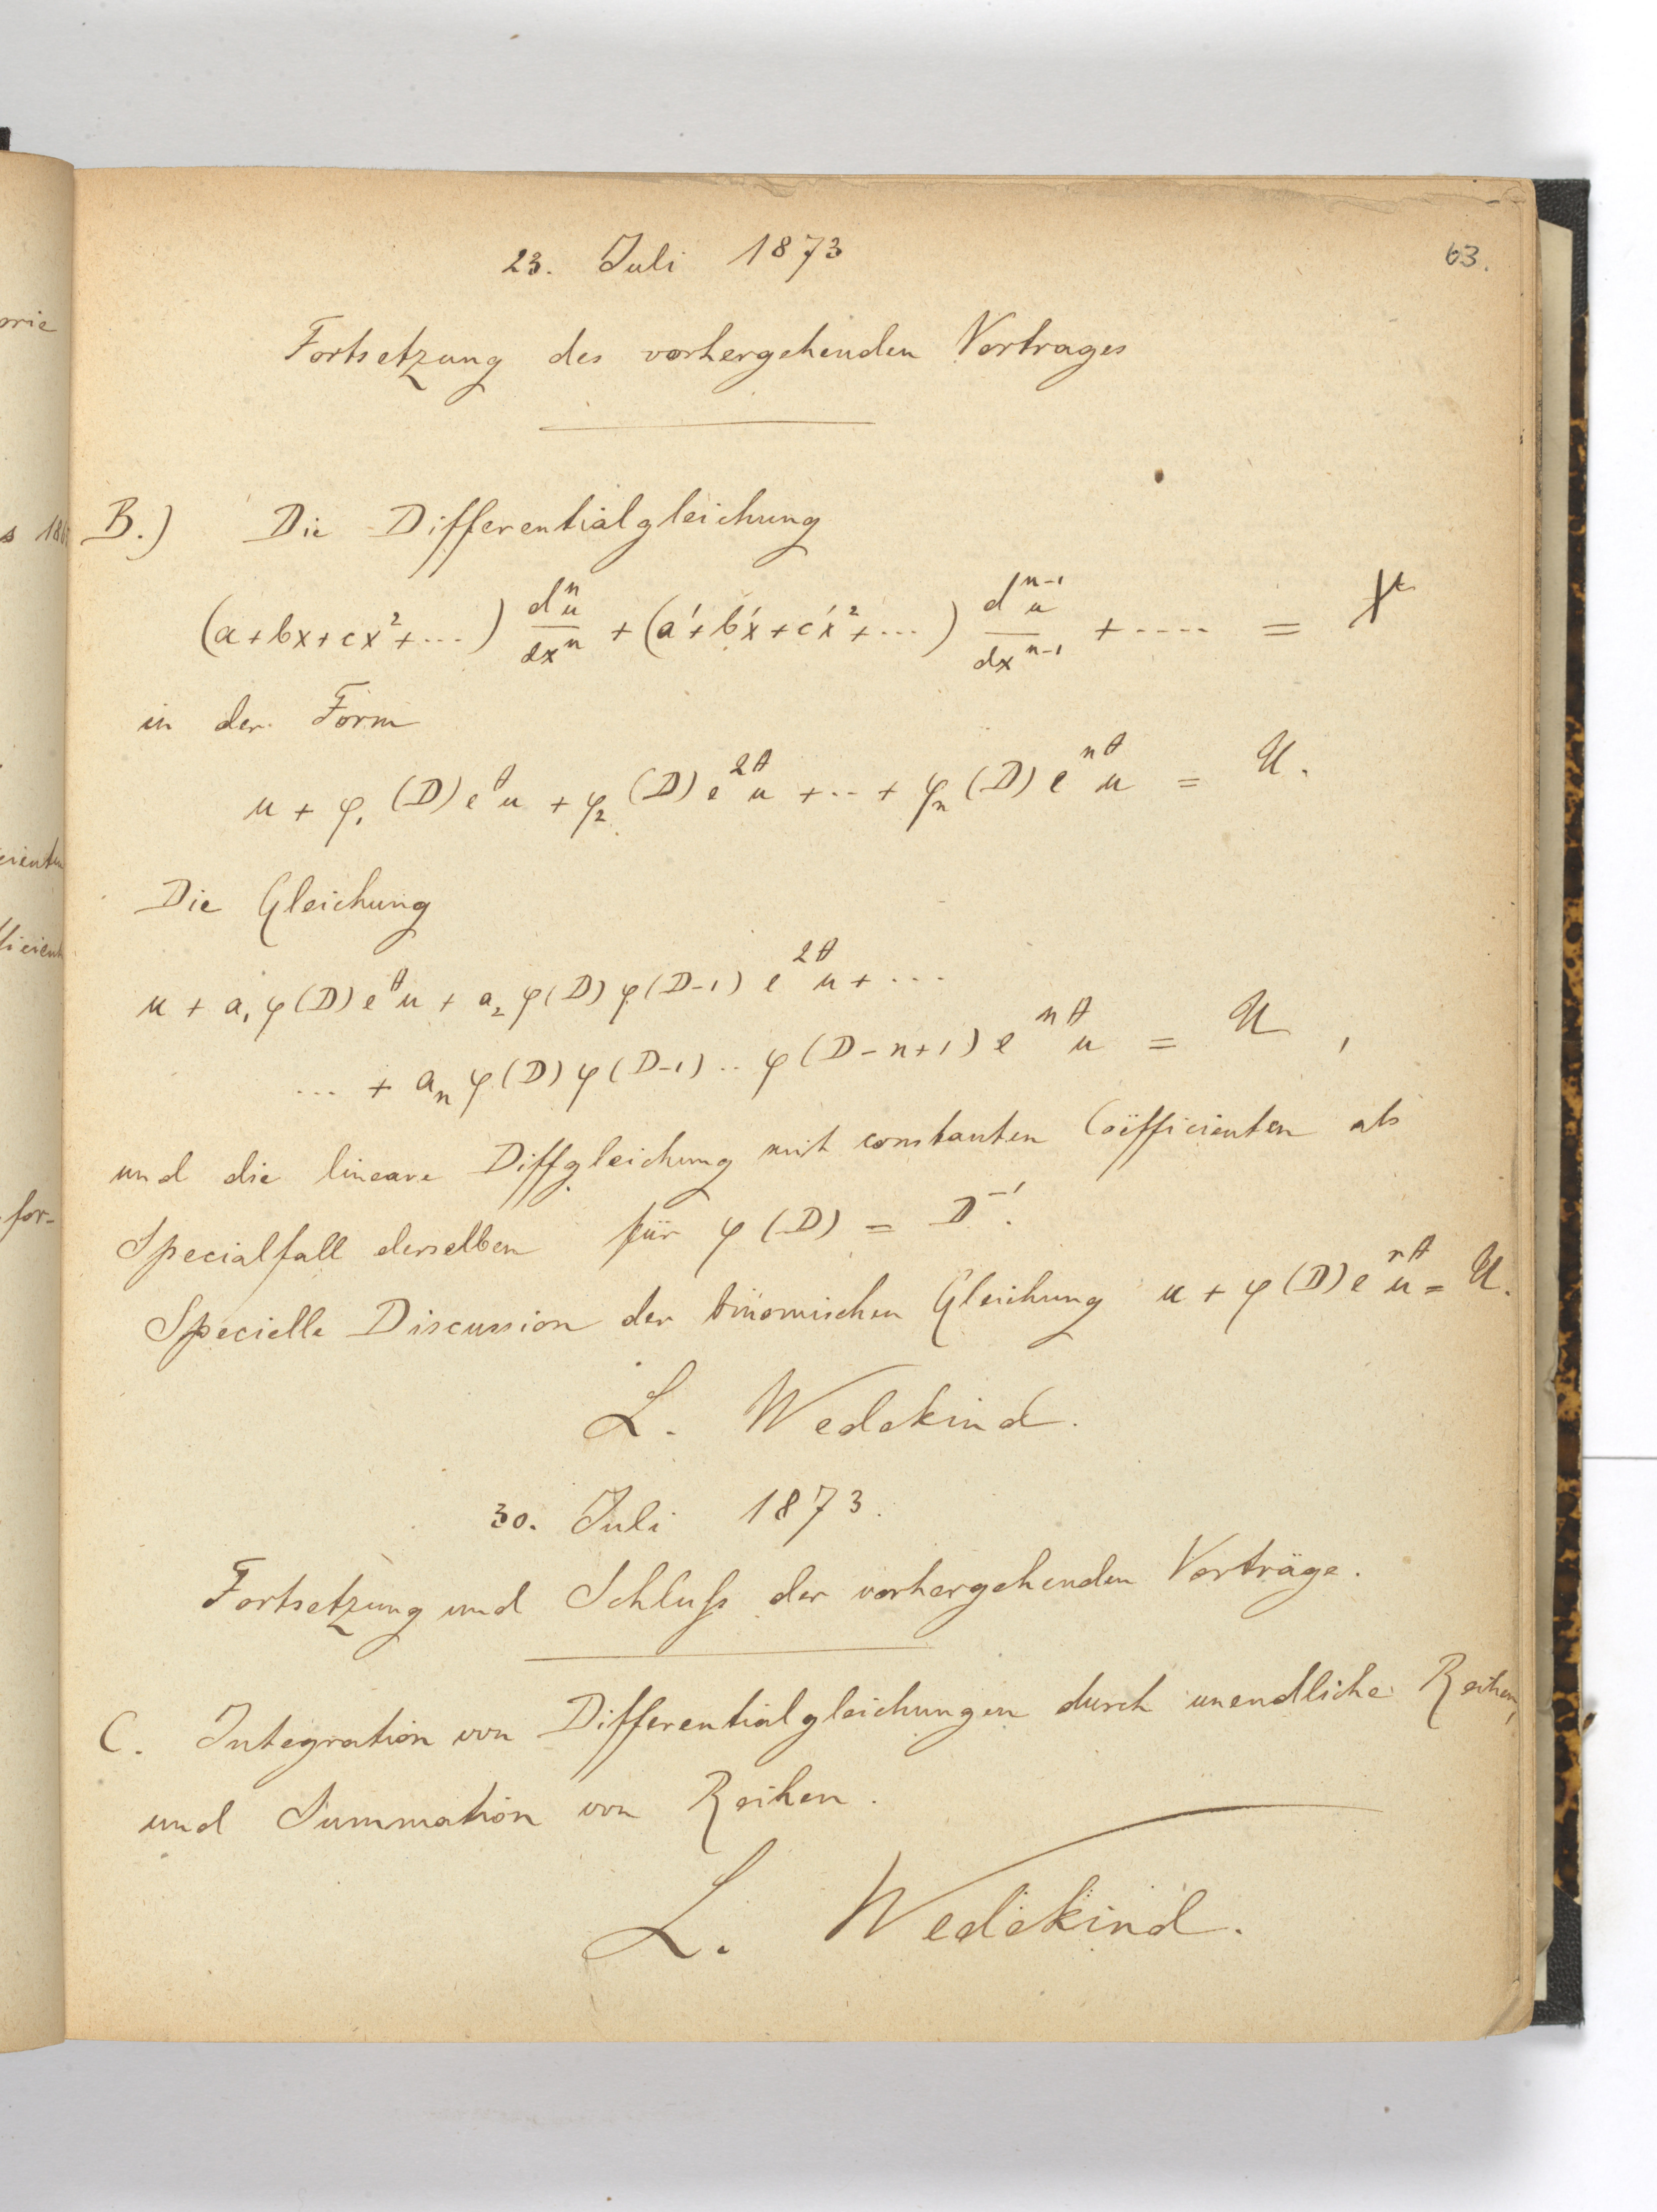 63.
23. Juli 1873
Fortsetzung des vorhergehenden Vortrages
B.) Die Differentialgleichung
(a+bx+cx²+...) dⁿu/dxⁿ + (a'+b'x+c'x²+...) dⁿ⁻¹u/dxⁿ⁻¹ + .... = X
in der Form
u + φ₁(D)e^θ u + φ₂(D)e^{2θ} u + .. + φₙ(D)e^{nθ} u = U.
Die Gleichung
u + a₁φ(D)e^θ u + a₂φ(D)φ(D-1)e^{2θ} u + ...
... + aₙφ(D)φ(D-1)..φ(D-n+1)e^{nθ} u = U,
und die lineare Diffgleichung mit constanten Coëfficienten als
Specialfall derselben für φ(D) = D⁻¹.
Specielle Discussion der binomischen Gleichung u + φ(D)e^{rθ} u = U.
L. Wedekind.
30. Juli 1873.
Fortsetzung und Schluß der vorhergehenden Vorträge.
C. Integration von Differentialgleichungen durch unendliche Reihen,
und Summation von Reihen.
L. Wedekind.